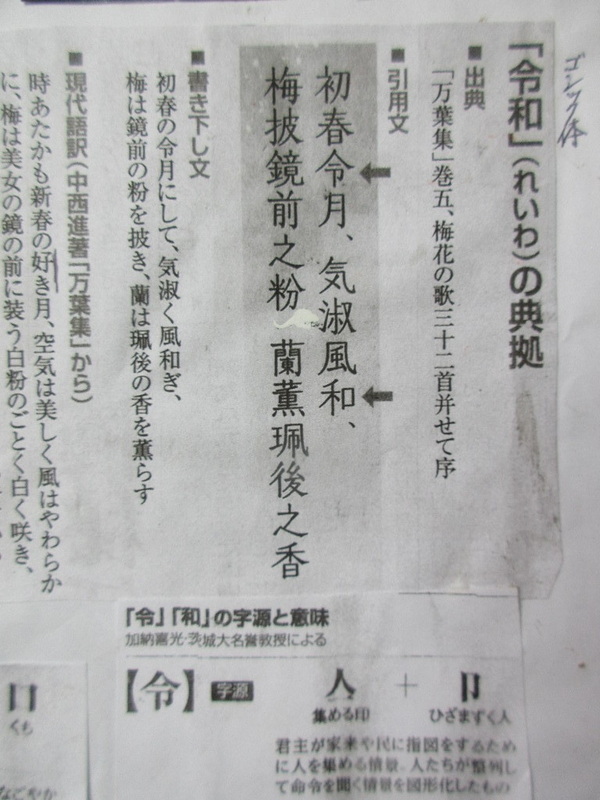 ゴシック体
「令和」(れいわ)の典拠
■出典
「万葉集」巻五、梅花の歌三十二首并せて序
■引用文
初春令月、気淑風和、
梅披鏡前之粉 蘭薫珮後之香
■書き下し文
初春の令月にして、気淑く風和ぎ、
梅は鏡前の粉を披き、蘭は珮後の香を薫らす
■現代語訳(中西進著「万葉集」から)
時あたかも新春の好き月、空気は美しく風はやわらか
に、梅は美女の鏡の前に装う白粉のごとく白く咲き、
「令」「和」の字源と意味
加納喜光・茨城大名誉教授による
【令】 字源
人 + 卩
集める印 ひざまずく人
君主が家来や民に指図をするため
に人を集める情景。人たちが整列し
て命令を聞く情景を図形化したもの
口
くち
なごやか